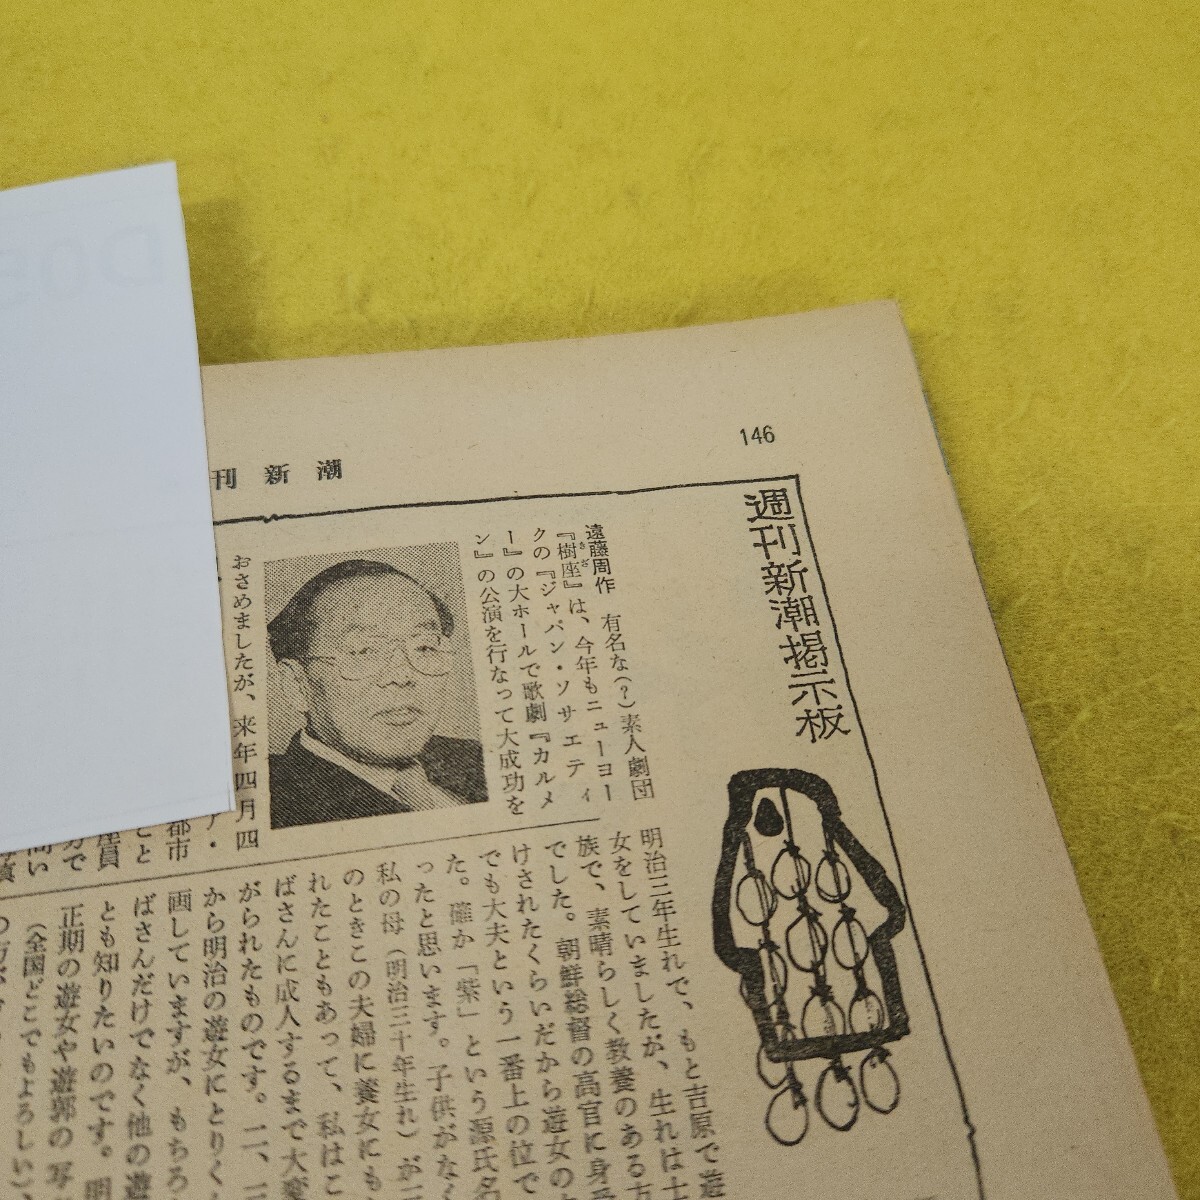 146
刊新潮
週刊新潮掲示板
遠藤周作 有名な(?)素人劇団
『樹座』は、今年もニューヨー
クの『ジャパン・ソサエティ
ー』の大ホールで歌劇『カルメ
ン』の公演を行なって大成功を
おさめましたが、来年四月四
ア・
都市
こと
座員
分で
明治三年生れで、もと吉原で遊
女をしていましたが、生れは士
族で、素晴らしく教養のある方
でした。朝鮮総督の高官に身受
けされたくらいだから遊女の中
でも大夫という一番上の位で
た。確か「紫」という源氏名
ったと思います。子供がなく
私の母(明治三十年生れ)が二
のときこの夫婦に養女にも
れたこともあって、私はこ
ばさんに成人するまで大変
がられたものです。二、三
から明治の遊女にとりく
画していますが、もちろ
ばさんだけでなく他の遊
とも知りたいのです。明
正期の遊女や遊郭の写
(全国どこでもよろしい)、